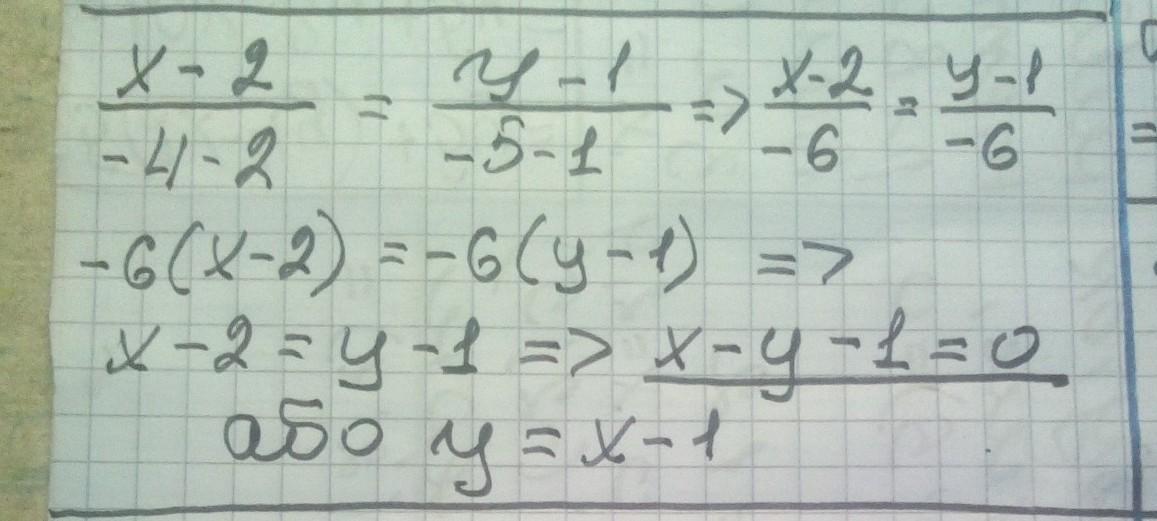 x - 2 / -4 - 2 = y - 1 / -5 - 1 => x-2 / -6 = y-1 / -6
-6(x-2) = -6(y-1) =>
x - 2 = y - 1 => x - y - 1 = 0
або y = x - 1